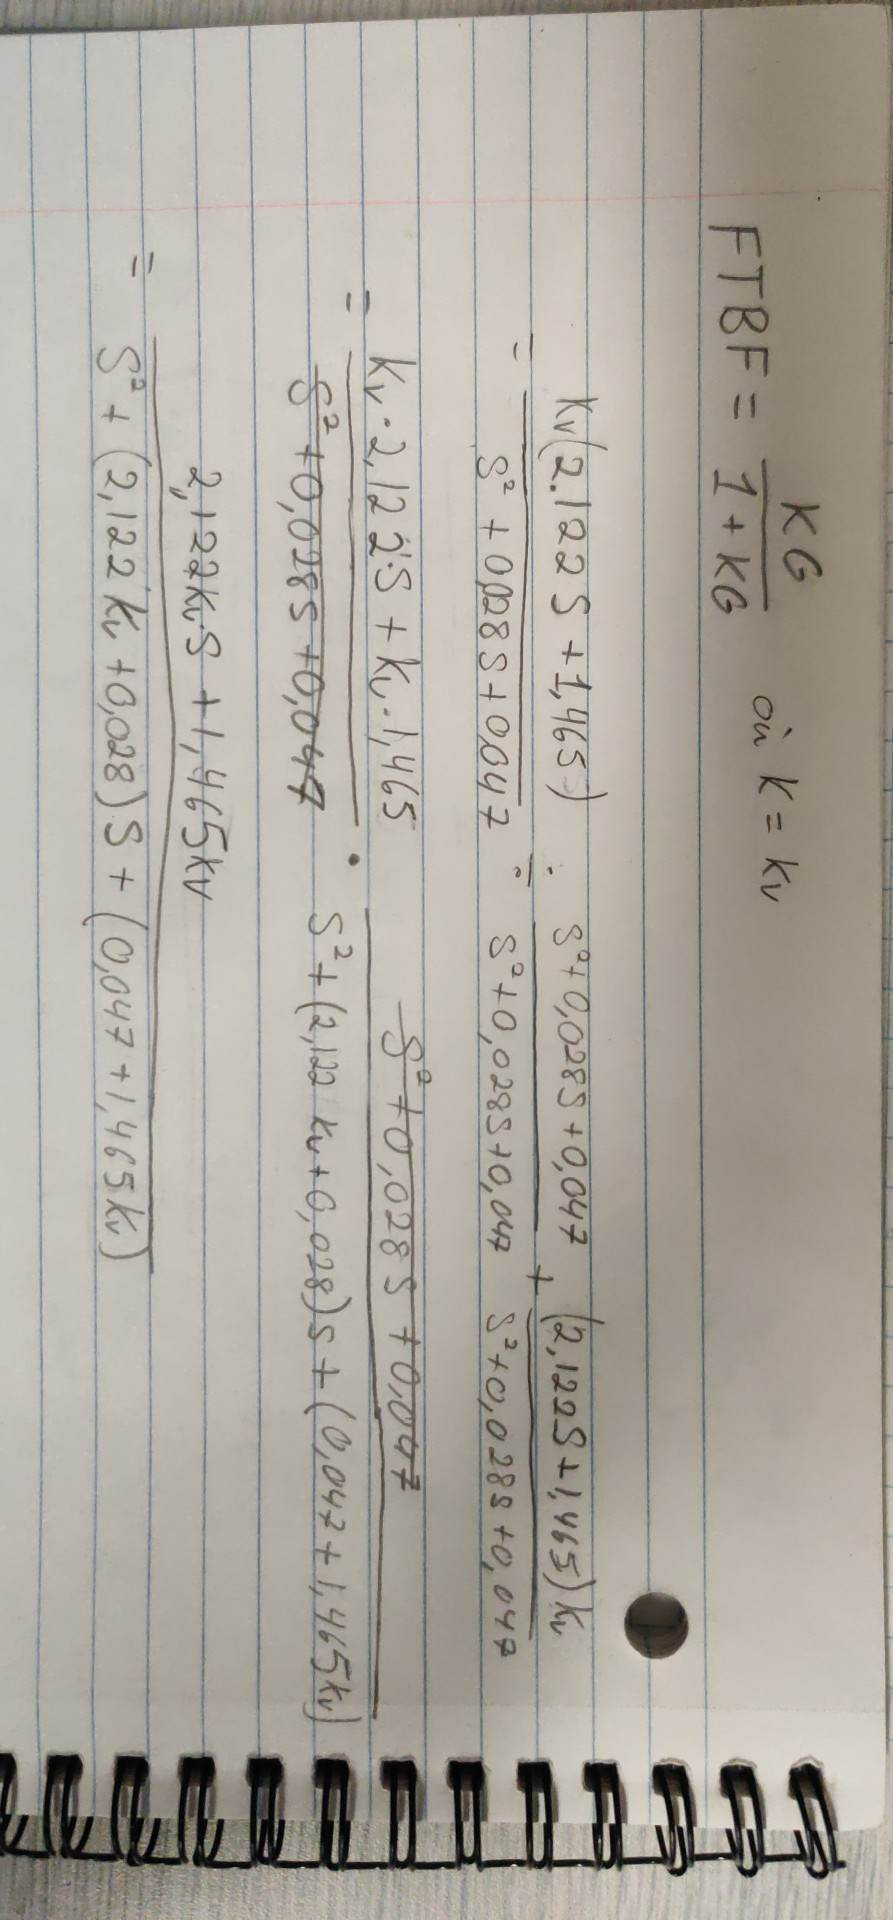 FTBF = KG / 1 + KG où K = kv
= kv(2.122S + 1,465) / S² + 0,028S + 0,047 ÷ S² + 0,028S + 0,047 / S² + 0,028S + 0,047 + (2,122S + 1,465)kv / S² + 0,028S + 0,047
= kv · 2,122·S + kv · 1,465 / S² + 0,028S + 0,047 · S² + 0,028S + 0,047 / S² + (2,122 kv + 0,028)S + (0,047 + 1,465kv)
= 2,122kv·S + 1,465kv / S² + (2,122kv + 0,028)S + (0,047 + 1,465kv)